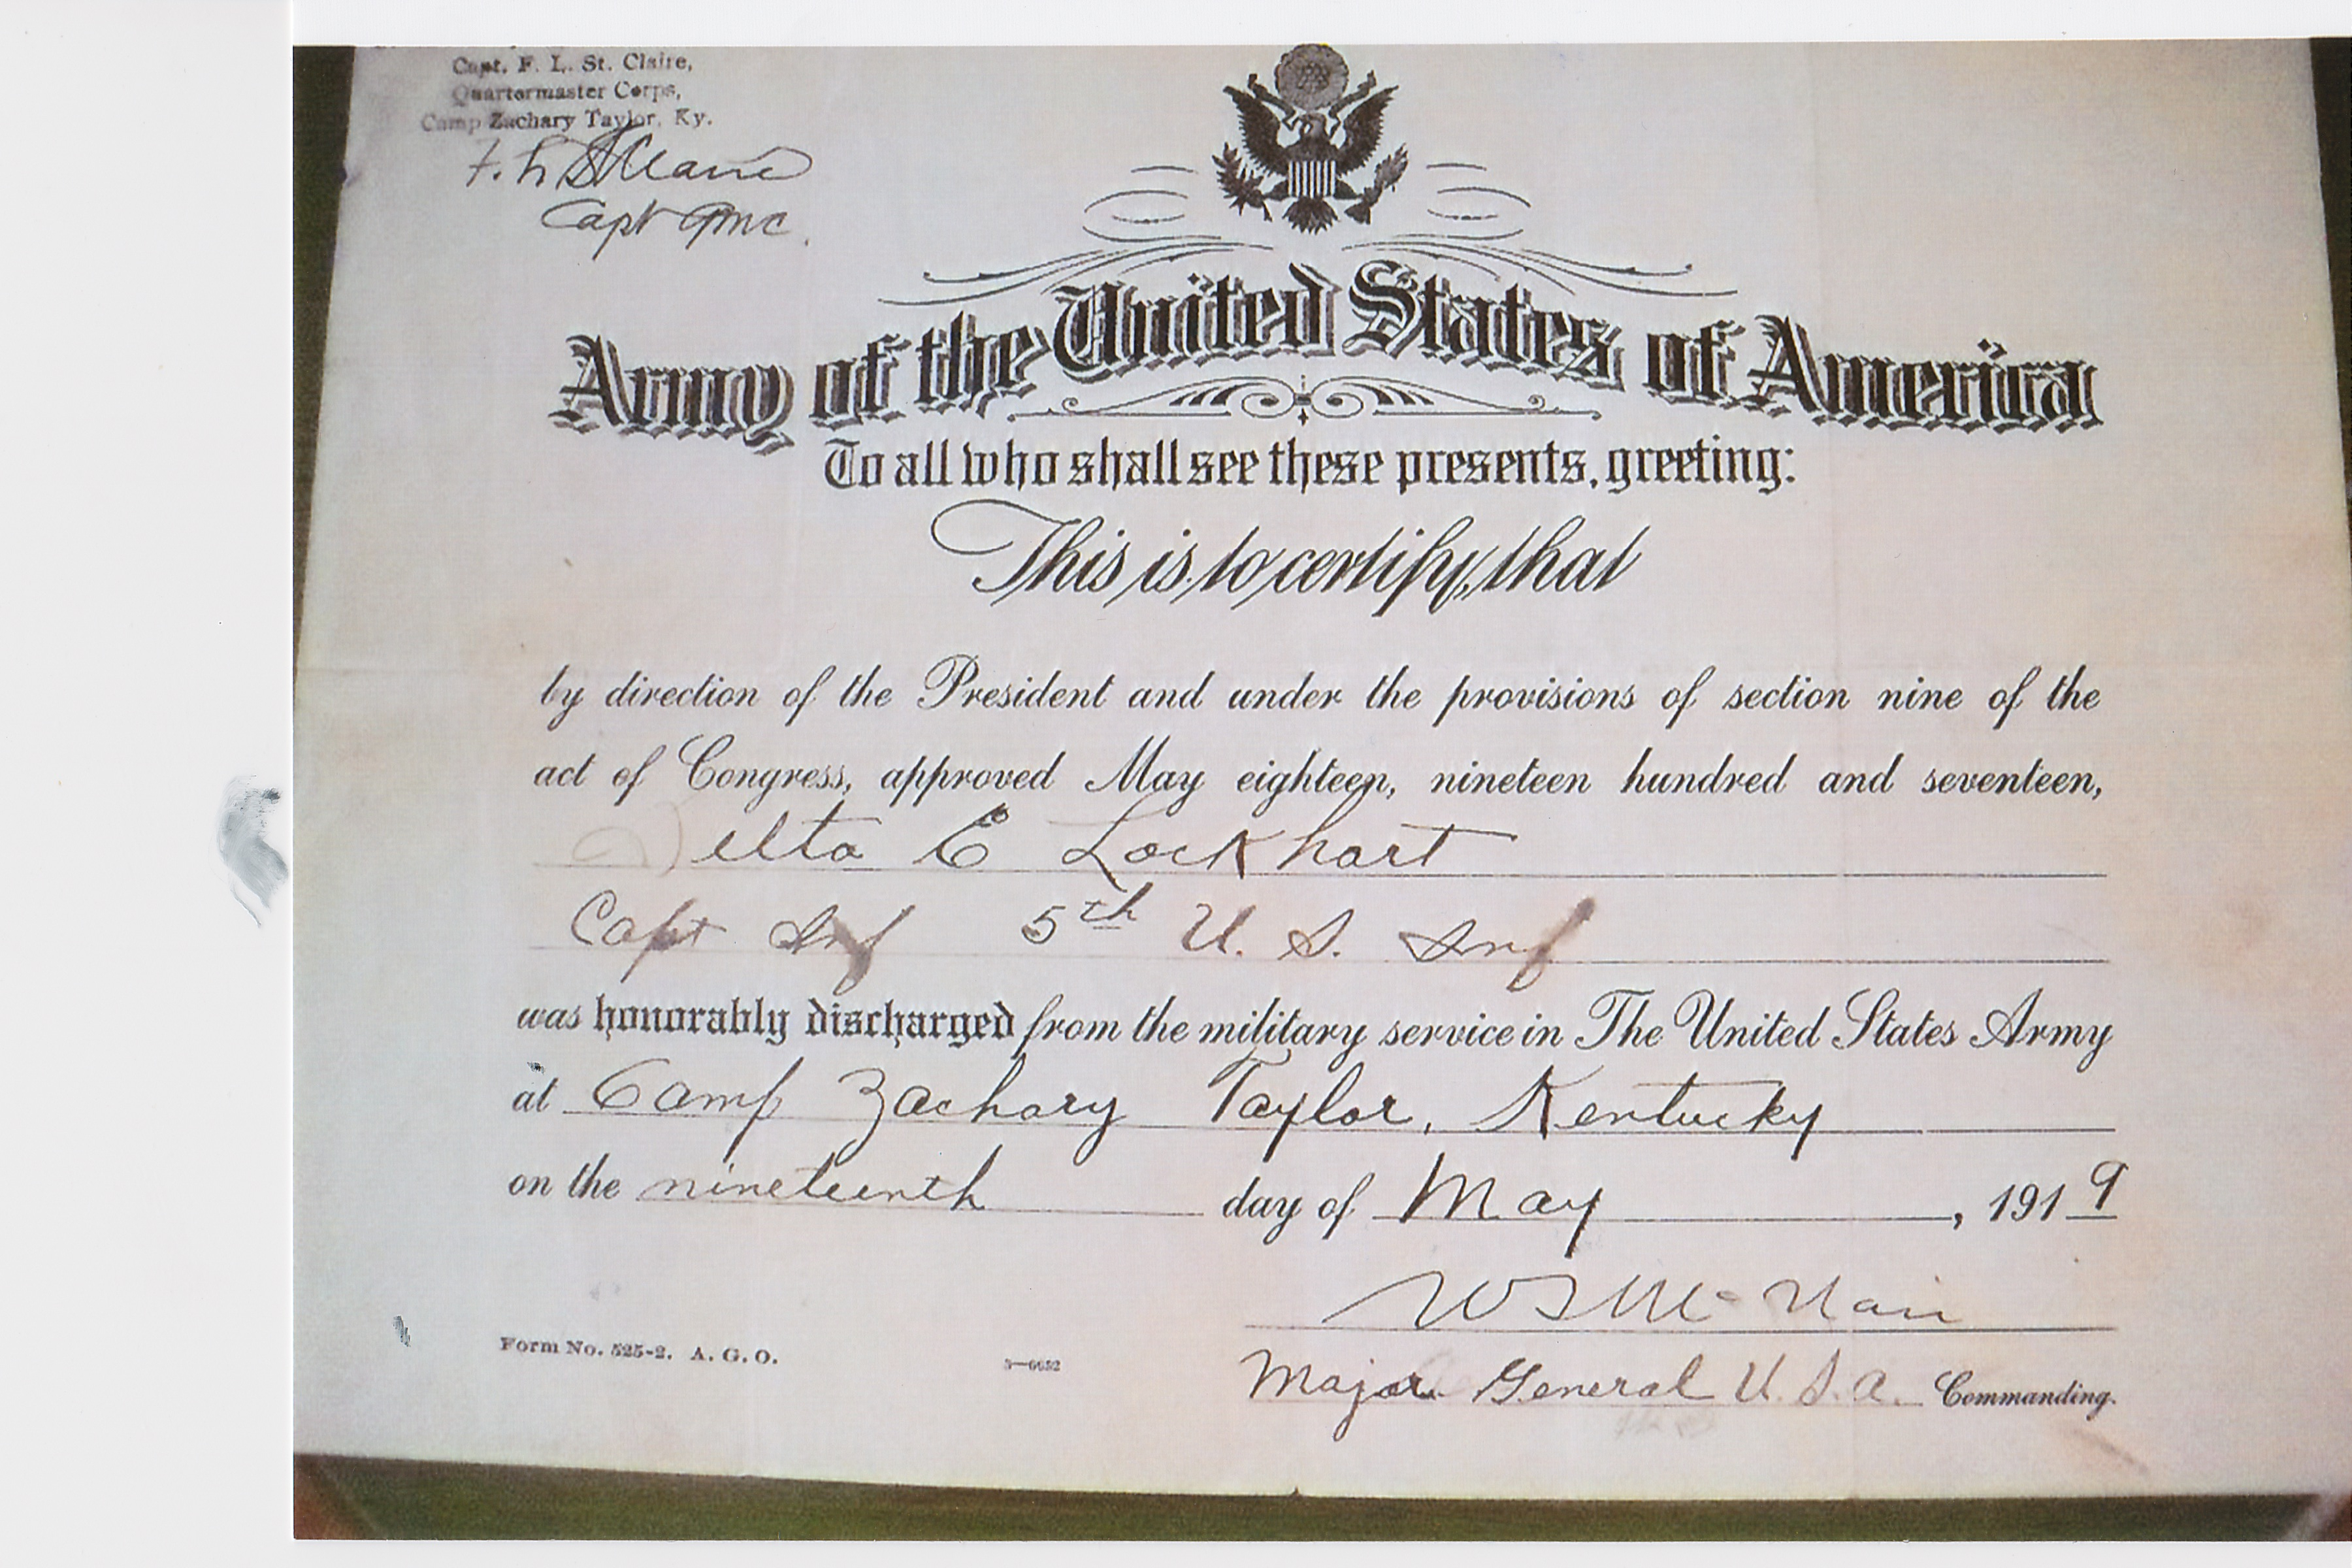 Capt. F. L. St. Claire,
Quartermaster Corps,
Camp Zachary Taylor, Ky.
F. L. St Claire
Capt QMC.
Army of the United States of America
To all who shall see these presents, greeting:
This is to certify, that
by direction of the President and under the provisions of section nine of the
act of Congress, approved May eighteen, nineteen hundred and seventeen,
Delta E Lockhart
Capt Inf 5th U. S. Inf
was honorably discharged from the military service in The United States Army
at Camp Zachary Taylor, Kentucky
on the nineteenth day of May, 1919
W S McNair
Major General U. S. A. Commanding.
Form No. 525-2. A. G. O. 3—6652